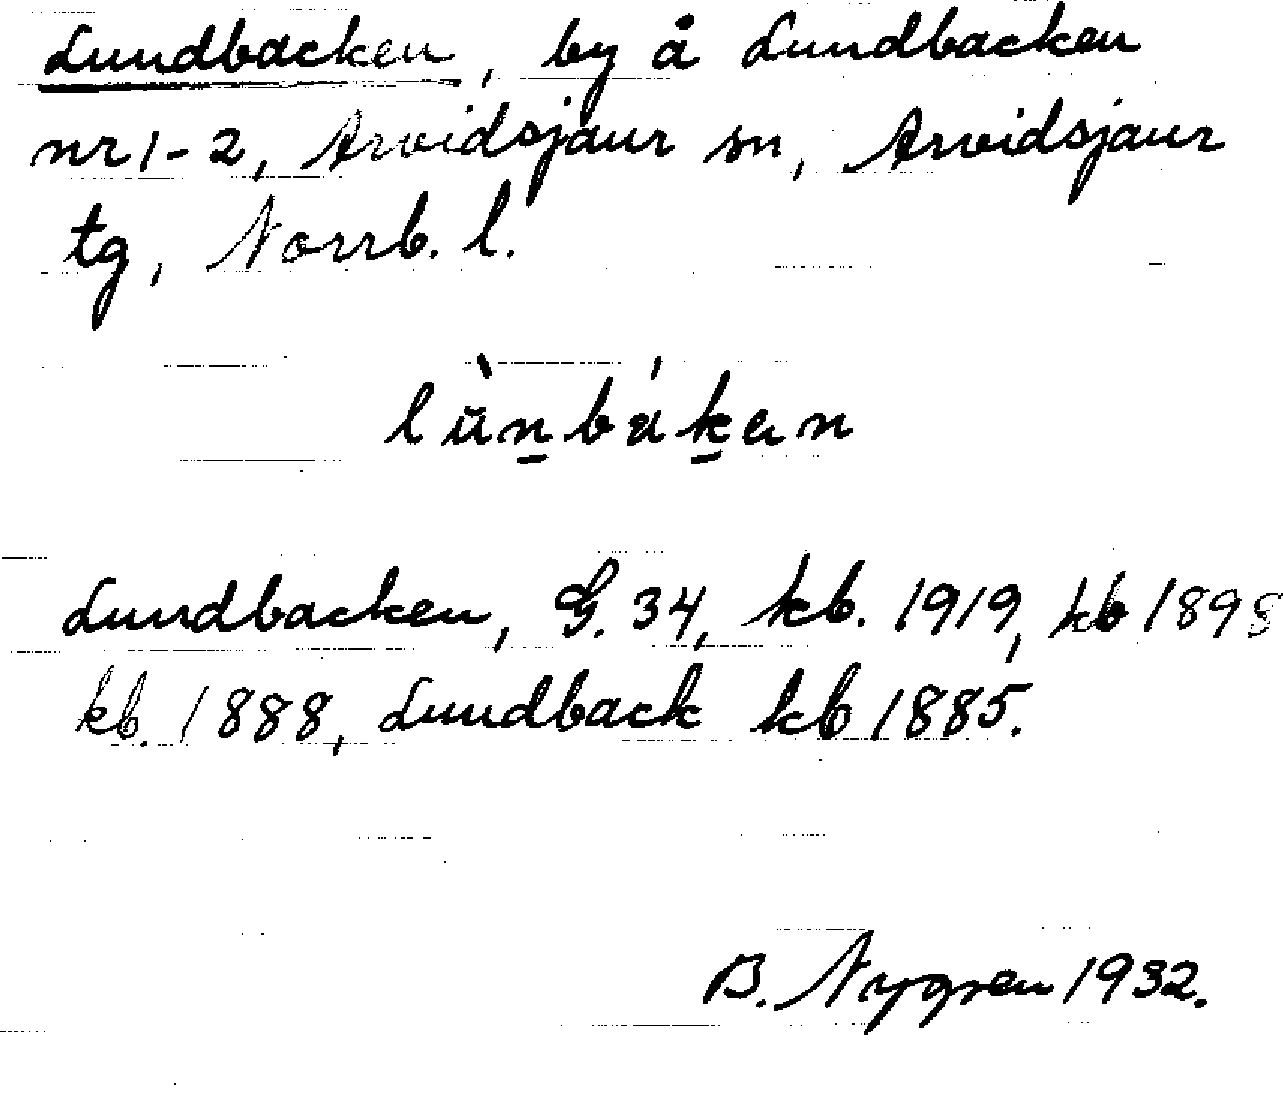 Lundbacken, by å Lundbacken
nr 1-2, Arvidsjaur sn, Arvidsjaur
tg, Norrb. l.
lùn̲bák̲an
Lundbacken, G. 34, kb. 1919, kb 1898
kb. 1888, Lundback kb 1885.
B. Nygren 1932.